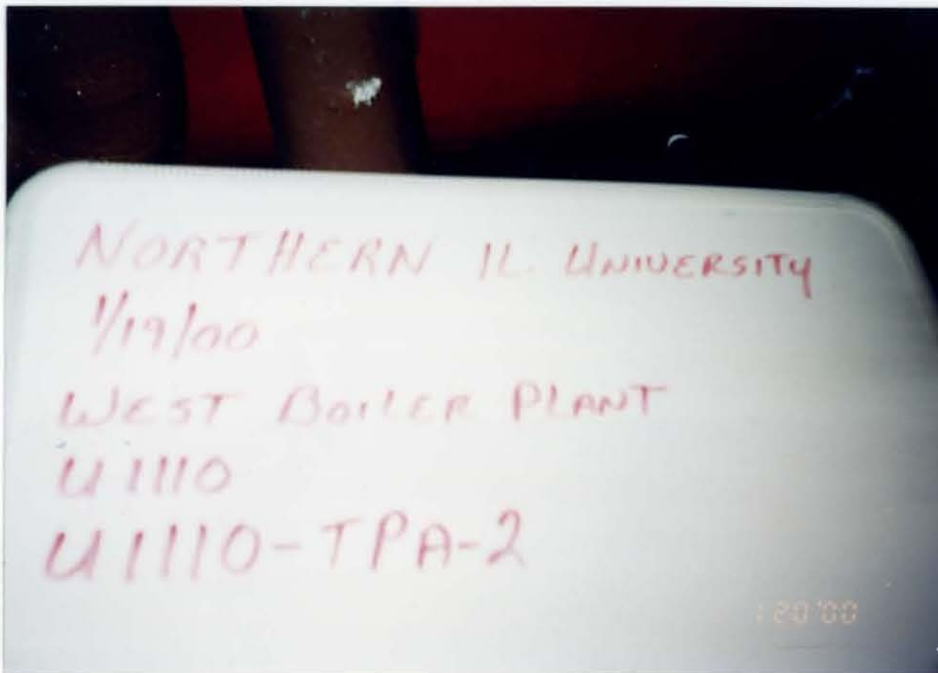 NORTHERN IL. UNIVERSITY
1/19/00
WEST BOILER PLANT
U1110
U1110-TPA-2
1 20 '00